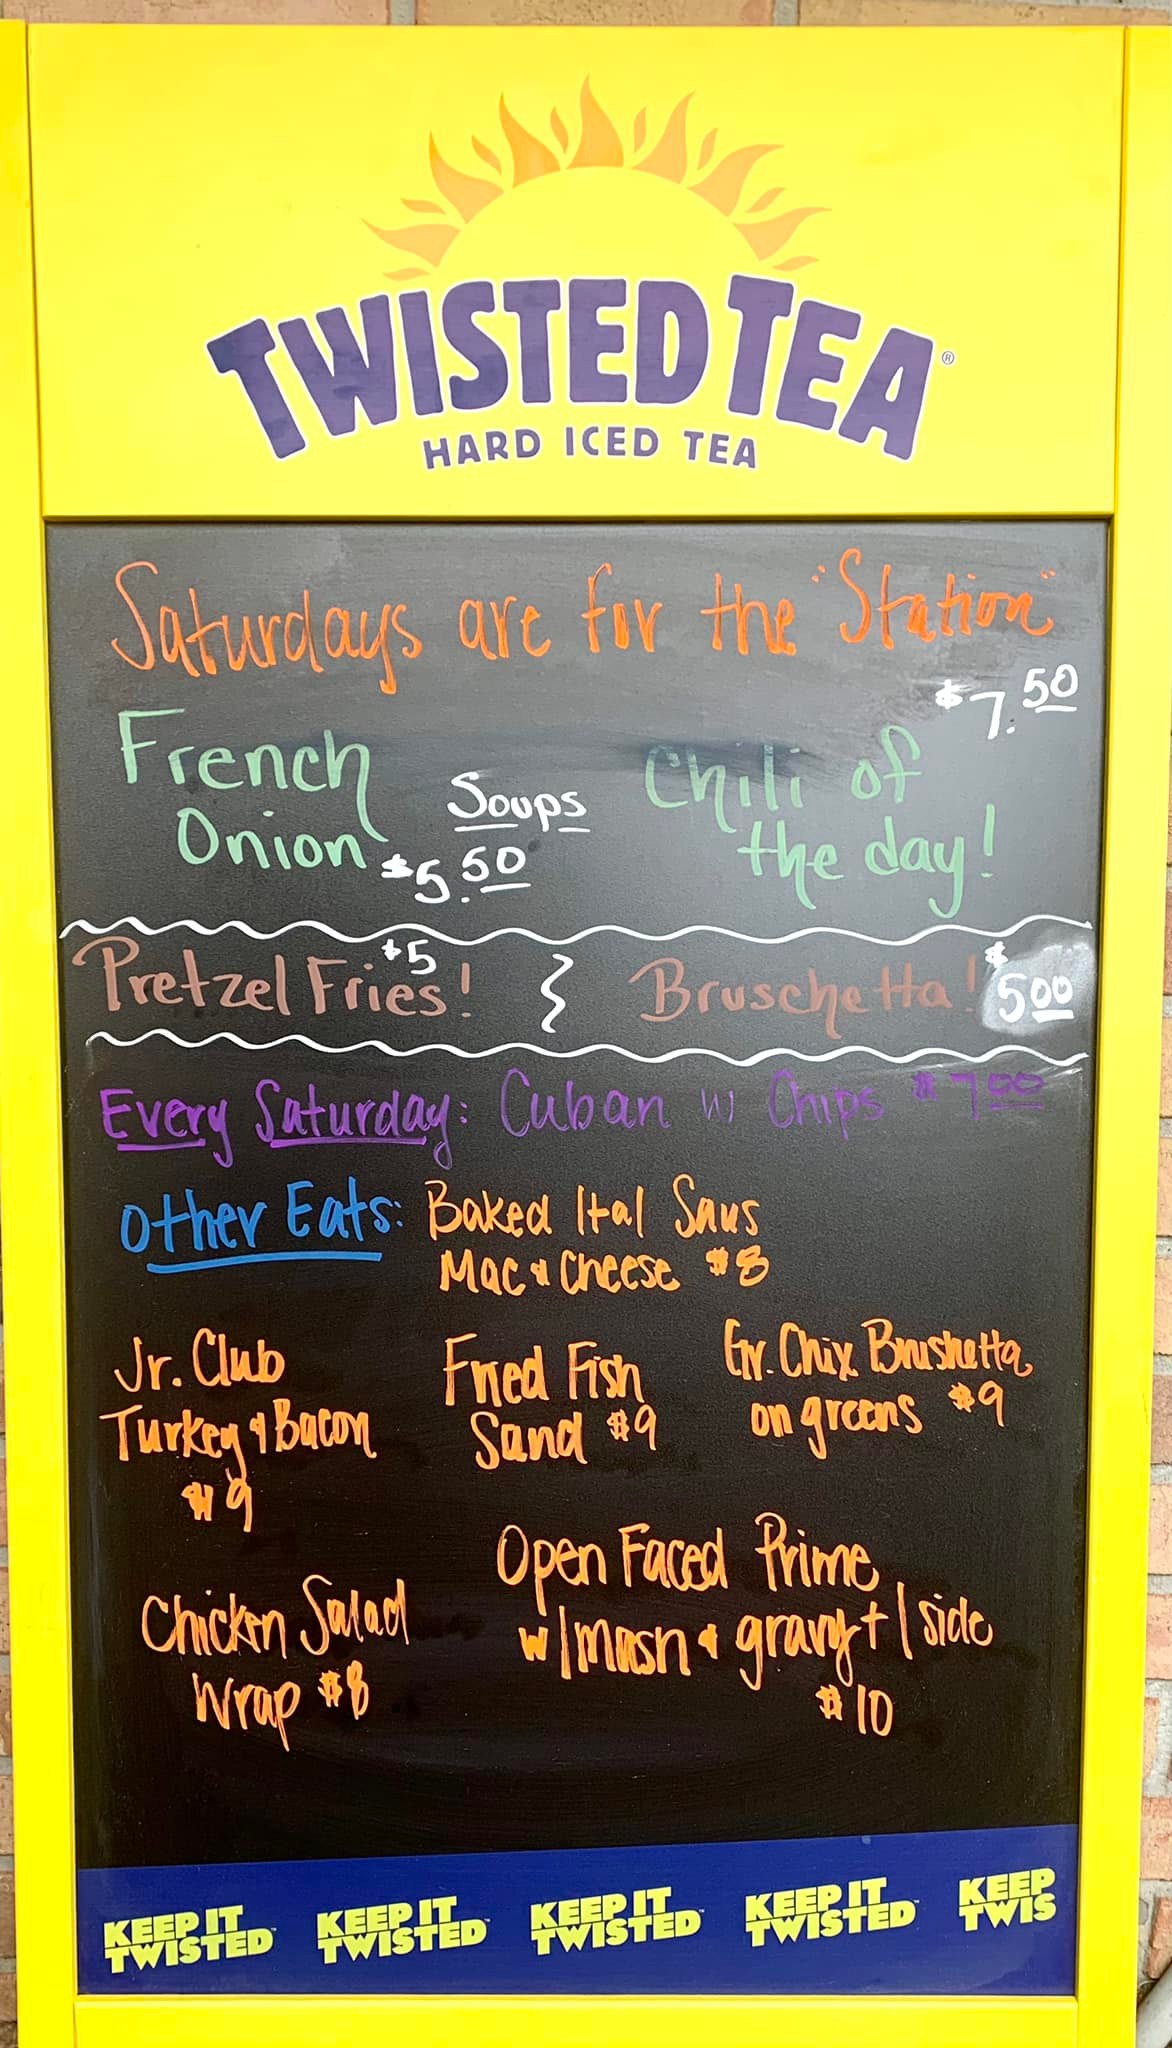 TWISTED TEA®
HARD ICED TEA
Saturdays are for the "Station"
$7.50
French
Onion
Soups
$5.50
Chili of
the day!
Pretzel Fries! $5
Bruschetta! $5.00
Every Saturday: Cuban w/ Chips $7.00
Other Eats: Baked Ital Saus
Mac & Cheese $8
Jr. Club
Turkey & Bacon
$9
Fried Fish
Sand $9
Gr. Chix Brushetta
on greens $9
Chicken Salad
Wrap $8
Open Faced Prime
w/ mash & gravy + 1 side
$10
KEEP IT
TWISTED™
KEEP IT
TWISTED™
KEEP IT
TWISTED™
KEEP IT
TWISTED™
KEEP
TWIS